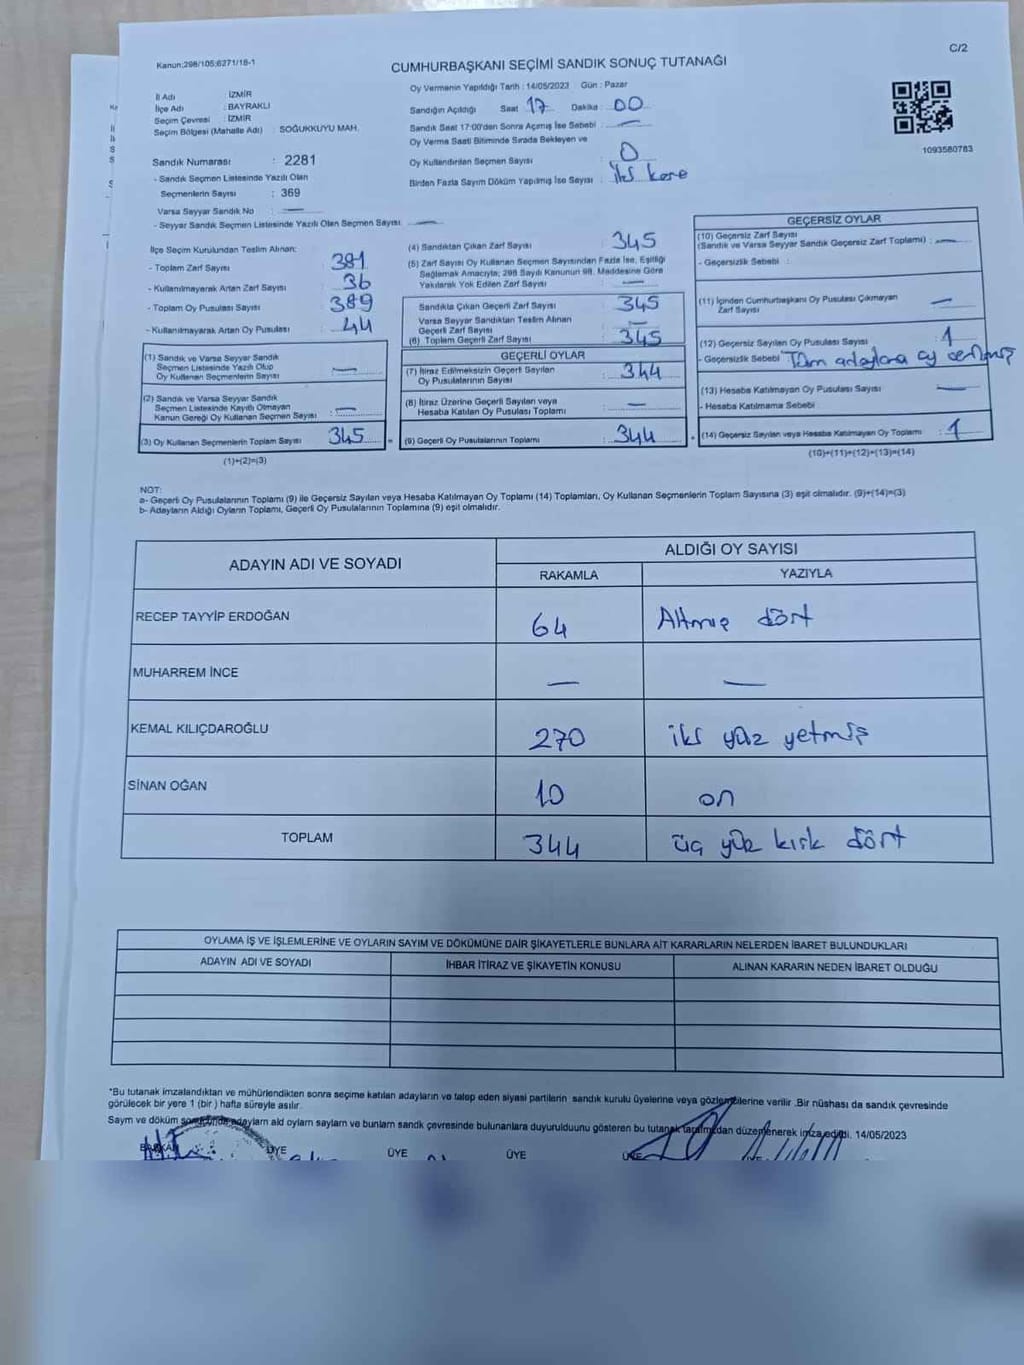 C/2
Kanun:298/105;6271/18-1
CUMHURBAŞKANI SEÇİMİ SANDIK SONUÇ TUTANAĞI
Oy Vermenin Yapıldığı Tarih : 14/05/2023 Gün : Pazar
İl Adı : İZMİR
İlçe Adı : BAYRAKLI
Seçim Çevresi : İZMİR
Seçim Bölgesi (Mahalle Adı) : SOĞUKKUYU MAH.
Sandığın Açıldığı Saat 17 Dakika : 00
Sandık Saat 17:00'den Sonra Açımış İse Sebebi : —
Oy Verme Saati Bitiminde Sırada Bekleyen ve
Oy Kullandırılan Seçmen Sayısı : 0
Birden Fazla Sayım Döküm Yapılmış İse Sayısı : iki kere
1093580783
Sandık Numarası : 2281
- Sandık Seçmen Listesinde Yazılı Olan
Seçmenlerin Sayısı : 369
Varsa Seyyar Sandık No : —
- Seyyar Sandık Seçmen Listesinde Yazılı Olan Seçmen Sayısı : —
İlçe Seçim Kurulundan Teslim Alınan:
- Toplam Zarf Sayısı : 381
- Kullanılmayarak Artan Zarf Sayısı : 36
- Toplam Oy Pusulası Sayısı : 389
- Kullanılmayarak Artan Oy Pusulası : 44
(1) Sandık ve Varsa Seyyar Sandık
Seçmen Listesinde Yazılı Olup
Oy Kullanan Seçmenlerin Sayısı : —
(2) Sandık ve Varsa Seyyar Sandık
Seçmen Listesinde Kayıtlı Olmayan
Kanun Gereği Oy Kullanan Seçmen Sayısı : —
(3) Oy Kullanan Seçmenlerin Toplam Sayısı : 345
(1)+(2)=(3)
(4) Sandıktan Çıkan Zarf Sayısı : 345
(5) Zarf Sayısı Oy Kullanan Seçmen Sayısından Fazla İse, Eşitliği
Sağlamak Amacıyla; 298 Sayılı Kanunun 98. Maddesine Göre
Yakılarak Yok Edilen Zarf Sayısı : —
Sandıkta Çıkan Geçerli Zarf Sayısı : 345
Varsa Seyyar Sandıktan Teslim Alınan
Geçerli Zarf Sayısı : —
(6) Toplam Geçerli Zarf Sayısı : 345
GEÇERLİ OYLAR
(7) İtiraz Edilmeksizin Geçerli Sayılan
Oy Pusulalarının Sayısı : 344
(8) İtiraz Üzerine Geçerli Sayılan veya
Hesaba Katılan Oy Pusulası Toplamı : —
(9) Geçerli Oy Pusulalarının Toplamı : 344
GEÇERSİZ OYLAR
(10) Geçersiz Zarf Sayısı
(Sandık ve Varsa Seyyar Sandık Geçersiz Zarf Toplamı) : —
- Geçersizlik Sebebi :
(11) İçinden Cumhurbaşkanı Oy Pusulası Çıkmayan
Zarf Sayısı : —
(12) Geçersiz Sayılan Oy Pusulası Sayısı : 1
- Geçersizlik Sebebi : Tüm adaylara oy verilmiş
(13) Hesaba Katılmayan Oy Pusulası Sayısı : —
- Hesaba Katılmama Sebebi :
(14) Geçersiz Sayılan veya Hesaba Katılmayan Oy Toplamı : 1
(10)+(11)+(12)+(13)=(14)
NOT:
a- Geçerli Oy Pusulalarının Toplamı (9) ile Geçersiz Sayılan veya Hesaba Katılmayan Oy Toplamı (14) Toplamları, Oy Kullanan Seçmenlerin Toplam Sayısına (3) eşit olmalıdır. (9)+(14)=(3)
b- Adayların Aldığı Oyların Toplamı, Geçerli Oy Pusulalarının Toplamına (9) eşit olmalıdır.
ADAYIN ADI VE SOYADI
ALDIĞI OY SAYISI
RAKAMLA YAZIYLA
RECEP TAYYİP ERDOĞAN 64 Altmış dört
MUHARREM İNCE — —
KEMAL KILIÇDAROĞLU 270 iki yüz yetmiş
SİNAN OĞAN 10 on
TOPLAM 344 üç yüz kırk dört
OYLAMA İŞ VE İŞLEMLERİNE VE OYLARIN SAYIM VE DÖKÜMÜNE DAİR ŞİKAYETLERLE BUNLARA AİT KARARLARIN NELERDEN İBARET BULUNDUKLARI
ADAYIN ADI VE SOYADI İHBAR İTİRAZ VE ŞİKAYETİN KONUSU ALINAN KARARIN NEDEN İBARET OLDUĞU
*Bu tutanak imzalandıktan ve mühürlendikten sonra seçime katılan adayların ve talep eden siyasi partilerin sandık kurulu üyelerine veya gözlemcilerine verilir .Bir nüshası da sandık çevresinde
görülecek bir yere 1 (bir ) hafta süreyle asılır.
Sayım ve döküm sonucunda adayların aldı oyların sayların ve bunların sandık çevresinde bulunanlara duyurulduunu gösteren bu tutanak tarafımızdan düzenlenerek imza edildi. 14/05/2023
BAŞKAN ÜYE ÜYE ÜYE ÜYE